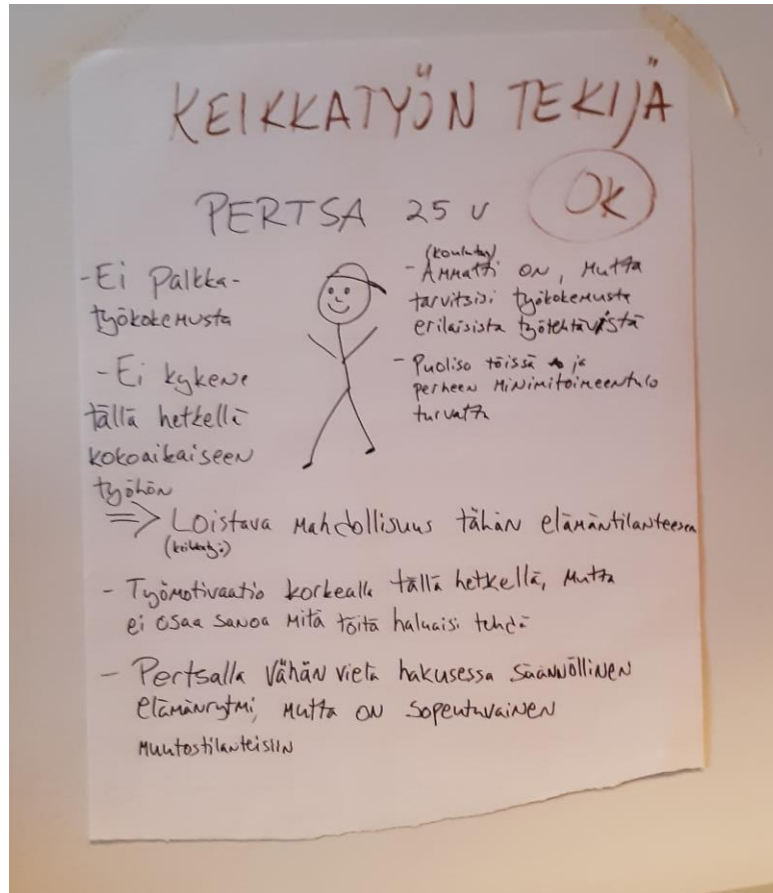 KEIKKATYÖN TEKIJÄ
OK
PERTSA 25 v
- Ei palkka-
työkokemusta
- Ei kykene
tällä hetkellä
kokoaikaiseen
työhön
(koulutus)
- Ammatti on, mutta
tarvitsisi työkokemusta
erilaisista työtehtävistä
- Puoliso töissä ja
perheen minimitoimeentulo
turvattu
=> Loistava mahdollisuus tähän elämäntilanteeseen
(keikkatyö)
- Työmotivaatio korkealla tällä hetkellä, mutta
ei osaa sanoa mitä töitä haluaisi tehdä
- Pertsalla vähän vielä hakusessa säännöllinen
elämänrytmi, mutta on sopeutuvainen
muutostilanteisiin